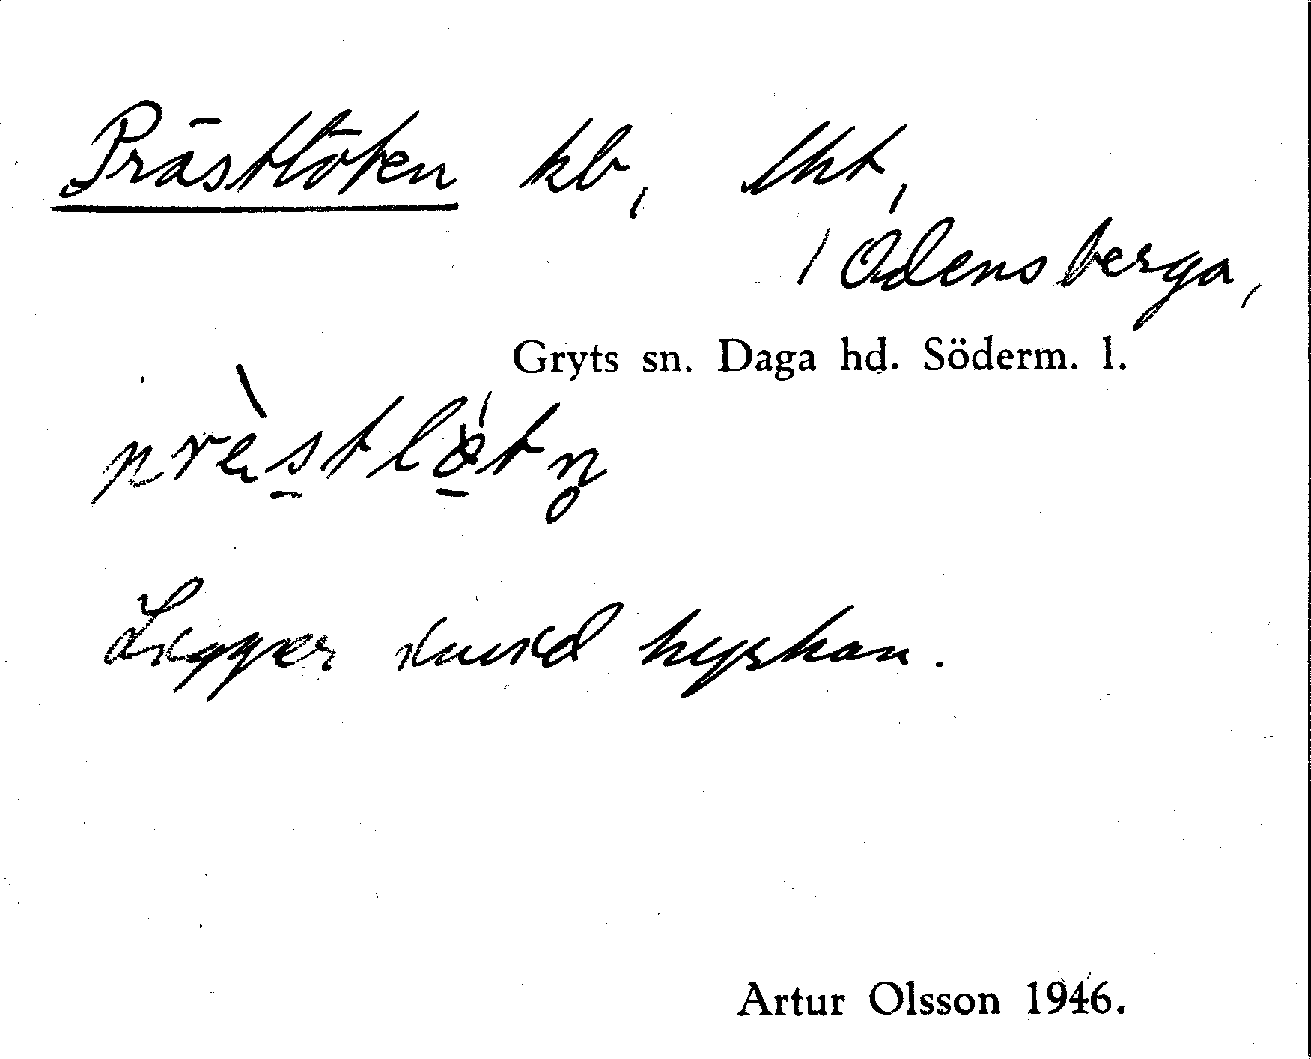 Prästlöten kb, lht,
i Odensberga,
Gryts sn. Daga hd. Söderm. l.
prèstlø̀tn̥
Ligger invid kyrkan.
Artur Olsson 1946.